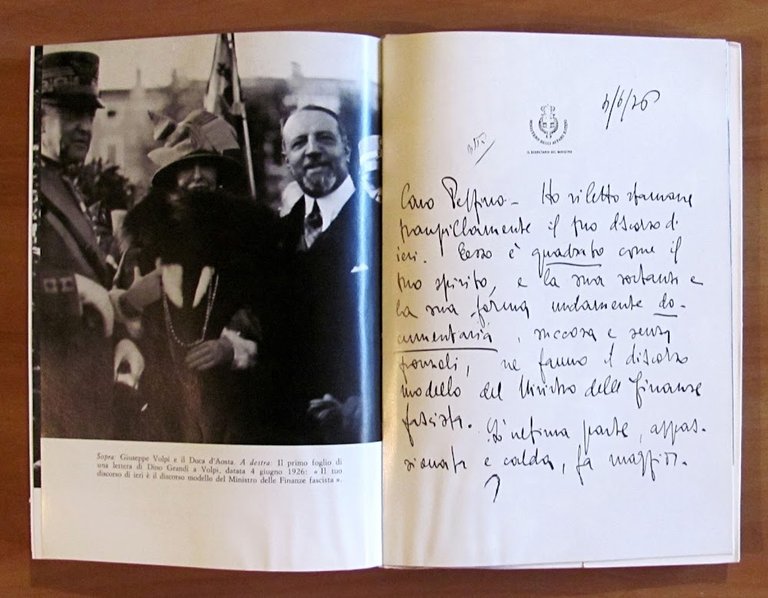 Sopra: Giuseppe Volpi e il Duca d'Aosta. A destra: Il primo foglio di
una lettera di Dino Grandi a Volpi, datata 4 giugno 1926: « Il tuo
discorso di ieri è il discorso modello del Ministro delle Finanze fascista ».
4/6/26
MINISTERO DEGLI AFFARI ESTERI
IL SEGRETARIO DEL MINISTRO
Caro Peppino - Ho riletto stamane
tranquillamente il tuo discorso di
ieri. Esso è quadrato come il
tuo spirito, e la sua sostanza e
la sua forma nudamente do-
cumentaria, succosa e senza
fronzoli, ne fanno il discorso
modello del Ministro delle Finanze
fascista. L'ultima parte, appas-
sionata e calda, fa maggior-